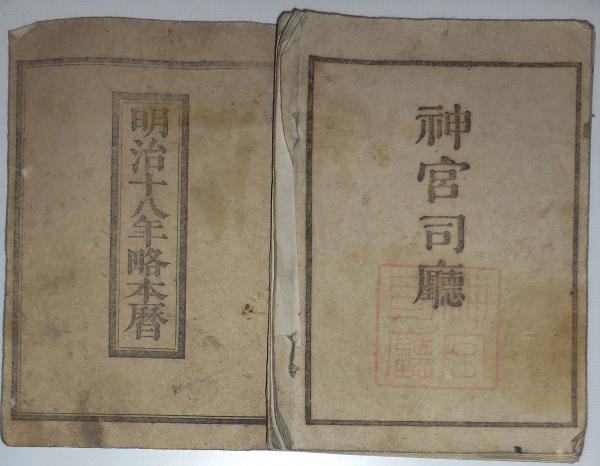 神宮司廳
神宮司廳
明治十八年略本暦